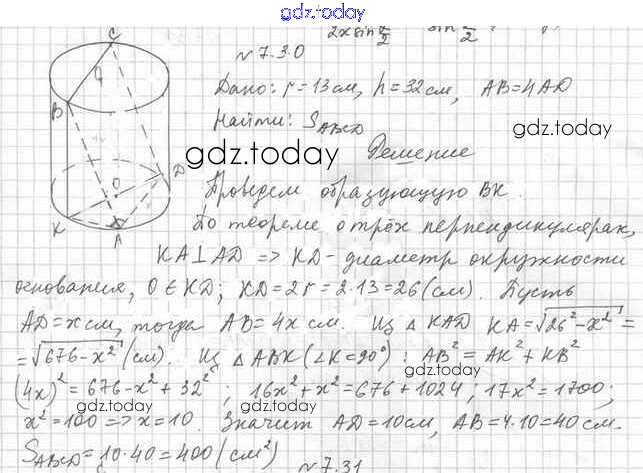 gdz.today
№7.30
C
Дано: r=13см, h=32см, AB=4AD
B
Найти: S_ABCD
gdz.today
gdz.today
Решение
D
Проведем образующую BK.
O
По теореме о трёх перпендикулярах,
K
A
KA⊥AD => KD - диаметр окружности
основания, O∈KD; KD=2r=2·13=26(см). Пусть
AD=xсм, тогда AB=4x см. Из △KAD KA=√26²-x² =
=√676-x² (см). Из △ABK (∠K=90°): AB²=AK²+KB²
gdz.today
(4x)²=676-x²+32²; 16x²+x²=676+1024; 17x²=1700;
gdz.today
x²=100 => x=10. Значит AD=10см, AB=4·10=40см.
gdz.today
gdz.today
S_ABCD=10·40=400(см²)
№7.31